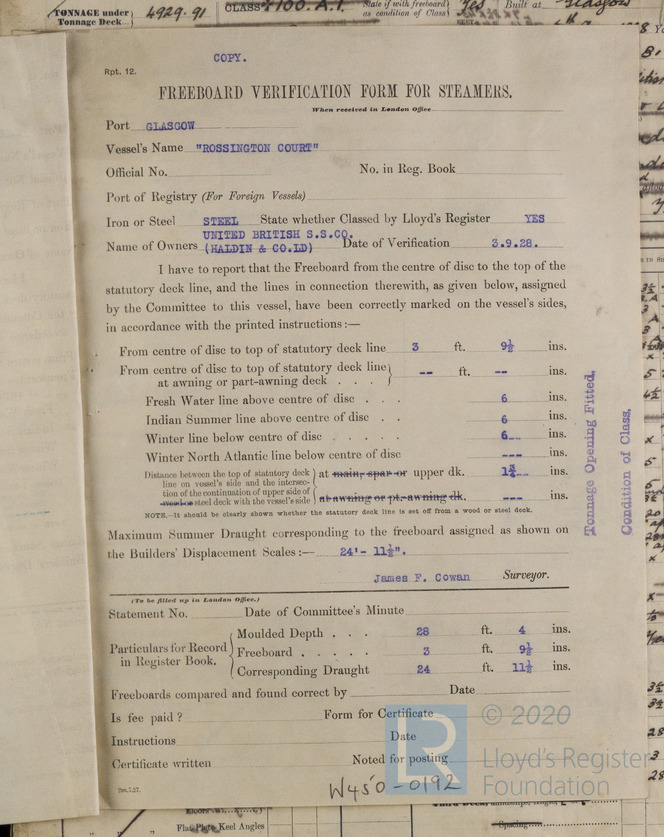 TONNAGE under
Tonnage Deck
4929.91
CLASS
State if with freeboard
as condition of Class
Yes
Built at
Glasgow
COPY.
Rpt. 12.
FREEBOARD VERIFICATION FORM FOR STEAMERS.
When received in London Office
Port GLASGOW
Vessel's Name "ROSSINGTON COURT"
Official No. No. in Reg. Book
Port of Registry (For Foreign Vessels)
Iron or Steel STEEL State whether Classed by Lloyd's Register YES
UNITED BRITISH S.S.CO.
Name of Owners (HALDIN & CO.LD) Date of Verification 3.9.28.
I have to report that the Freeboard from the centre of disc to the top of the
statutory deck line, and the lines in connection therewith, as given below, assigned
by the Committee to this vessel, have been correctly marked on the vessel's sides,
in accordance with the printed instructions :—
From centre of disc to top of statutory deck line 3 ft. 9½ ins.
From centre of disc to top of statutory deck line
at awning or part-awning deck . . . -- ft. -- ins.
Fresh Water line above centre of disc . . . 6 ins.
Indian Summer line above centre of disc . . 6 ins.
Winter line below centre of disc . . . . . 6 ins.
Winter North Atlantic line below centre of disc --- ins.
Distance between the top of statutory deck
line on vessel's side and the intersec-
tion of the continuation of upper side of
wood or steel deck with the vessel's side
at main, spar or upper dk. ins.
at awning or pt.-awning dk. --- ins.
NOTE.—It should be clearly shown whether the statutory deck line is set off from a wood or steel deck.
Maximum Summer Draught corresponding to the freeboard assigned as shown on
the Builders' Displacement Scales :— 24'- 11½".
James F. Cowan Surveyor.
(To be filled up in London Office.)
Statement No. Date of Committee's Minute
Particulars for Record
in Register Book.
Moulded Depth . . . 28 ft. 4 ins.
Freeboard . . . . . 3 ft. 9½ ins.
Corresponding Draught 24 ft. 11½ ins.
Freeboards compared and found correct by Date
Is fee paid ? Form for Certificate
Instructions Date
Certificate written Noted for posting
Tonnage Opening Fitted,
Condition of Class,
W450-0192
© 2020
LR
Lloyd's Register
Foundation
Flat Plate Keel Angles
Spacing